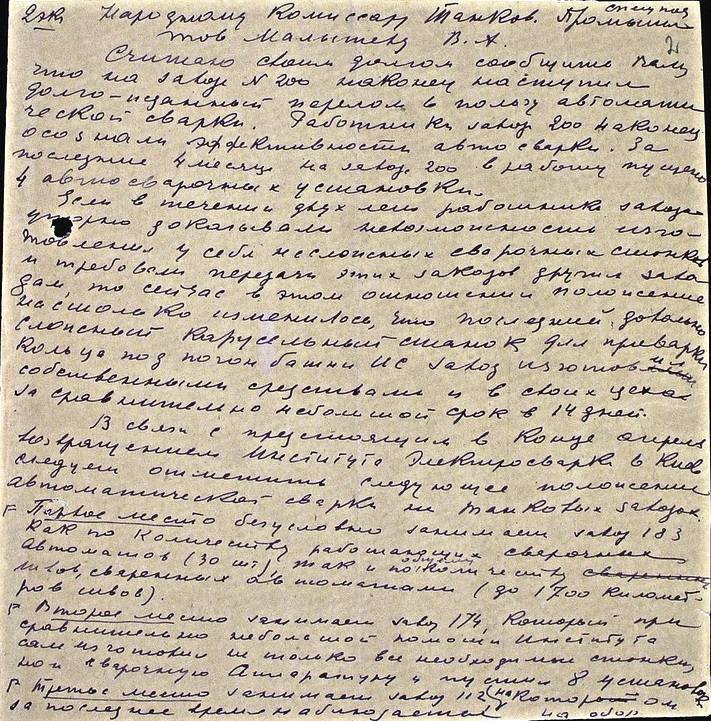 2 экз Народному Комиссару Танков. Промышл
спецпод
тов Малышеву В. А. 2
Считаю своим долгом сообщить Вам,
что на заводе № 200 наконец наступил
долго-жданный перелом в пользу автомати
ческой сварки. Работники завода 200 наконец
осознали эффективность автосварки. За
последние 4 месяца на заводе 200 в работу пущено
4 автосварочных установки.
Если в течении двух лет работники завода
упорно доказывали невозможность изго-
товления у себя несложных сварочных станков
и требовали передачи этих заказов другим заво
дам, то сейчас в этом отношении положение
настолько изменилось, что последний, довольно
сложный карусельный станок для приварки
кольца под погон башни ИС завод изготовил
собственными средствами и в своих цехах
за сравнительно небольшой срок в 14 дней.
В связи с предстоящим в конце апреля
возвращением Института Электросварки в Киев
следует отметить следующее положение
автоматической сварки на танковых заводах.
Первое место безусловно занимает завод 183
как по количеству работающих сварочных
автоматов (30 шт), так и по общему количеству
швов, сваренных автоматами (до 1700 километ-
ров швов).
Второе место занимает завод 174, который при
сравнительно небольшой помощи Института
сам изготовил не только все необходимые станки,
но и сварочную Аппаратуру и пустил 8 установок
Третье место занимает завод 112 на котором
за последнее время наблюдается